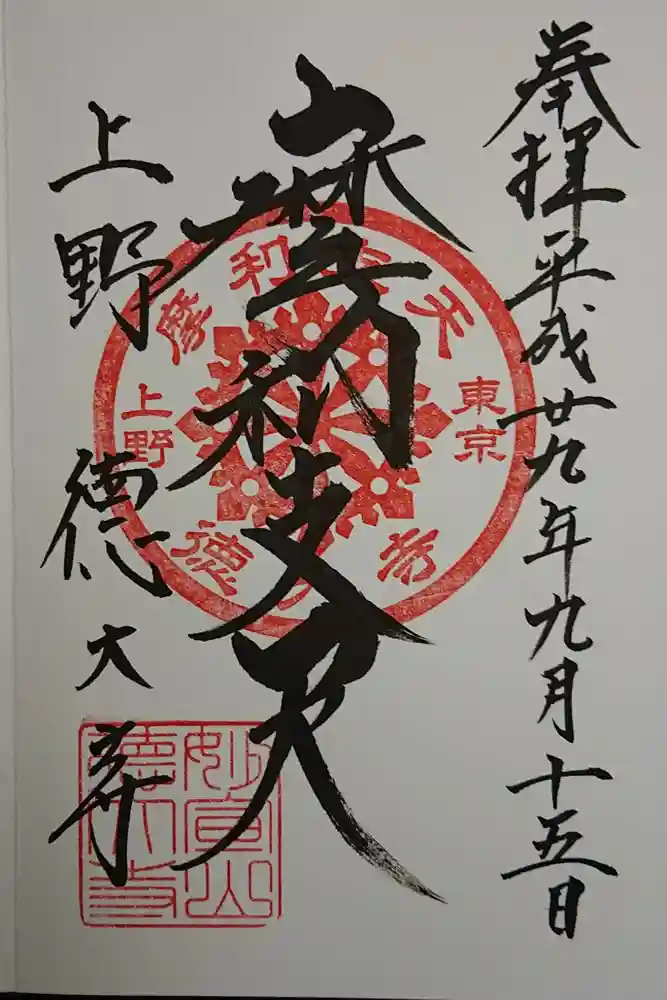 奉拝 平成廿九年九月十五日
摩利支天
上野 徳大寺
摩利支天
東京
上野
徳大寺
妙宣山
徳大寺